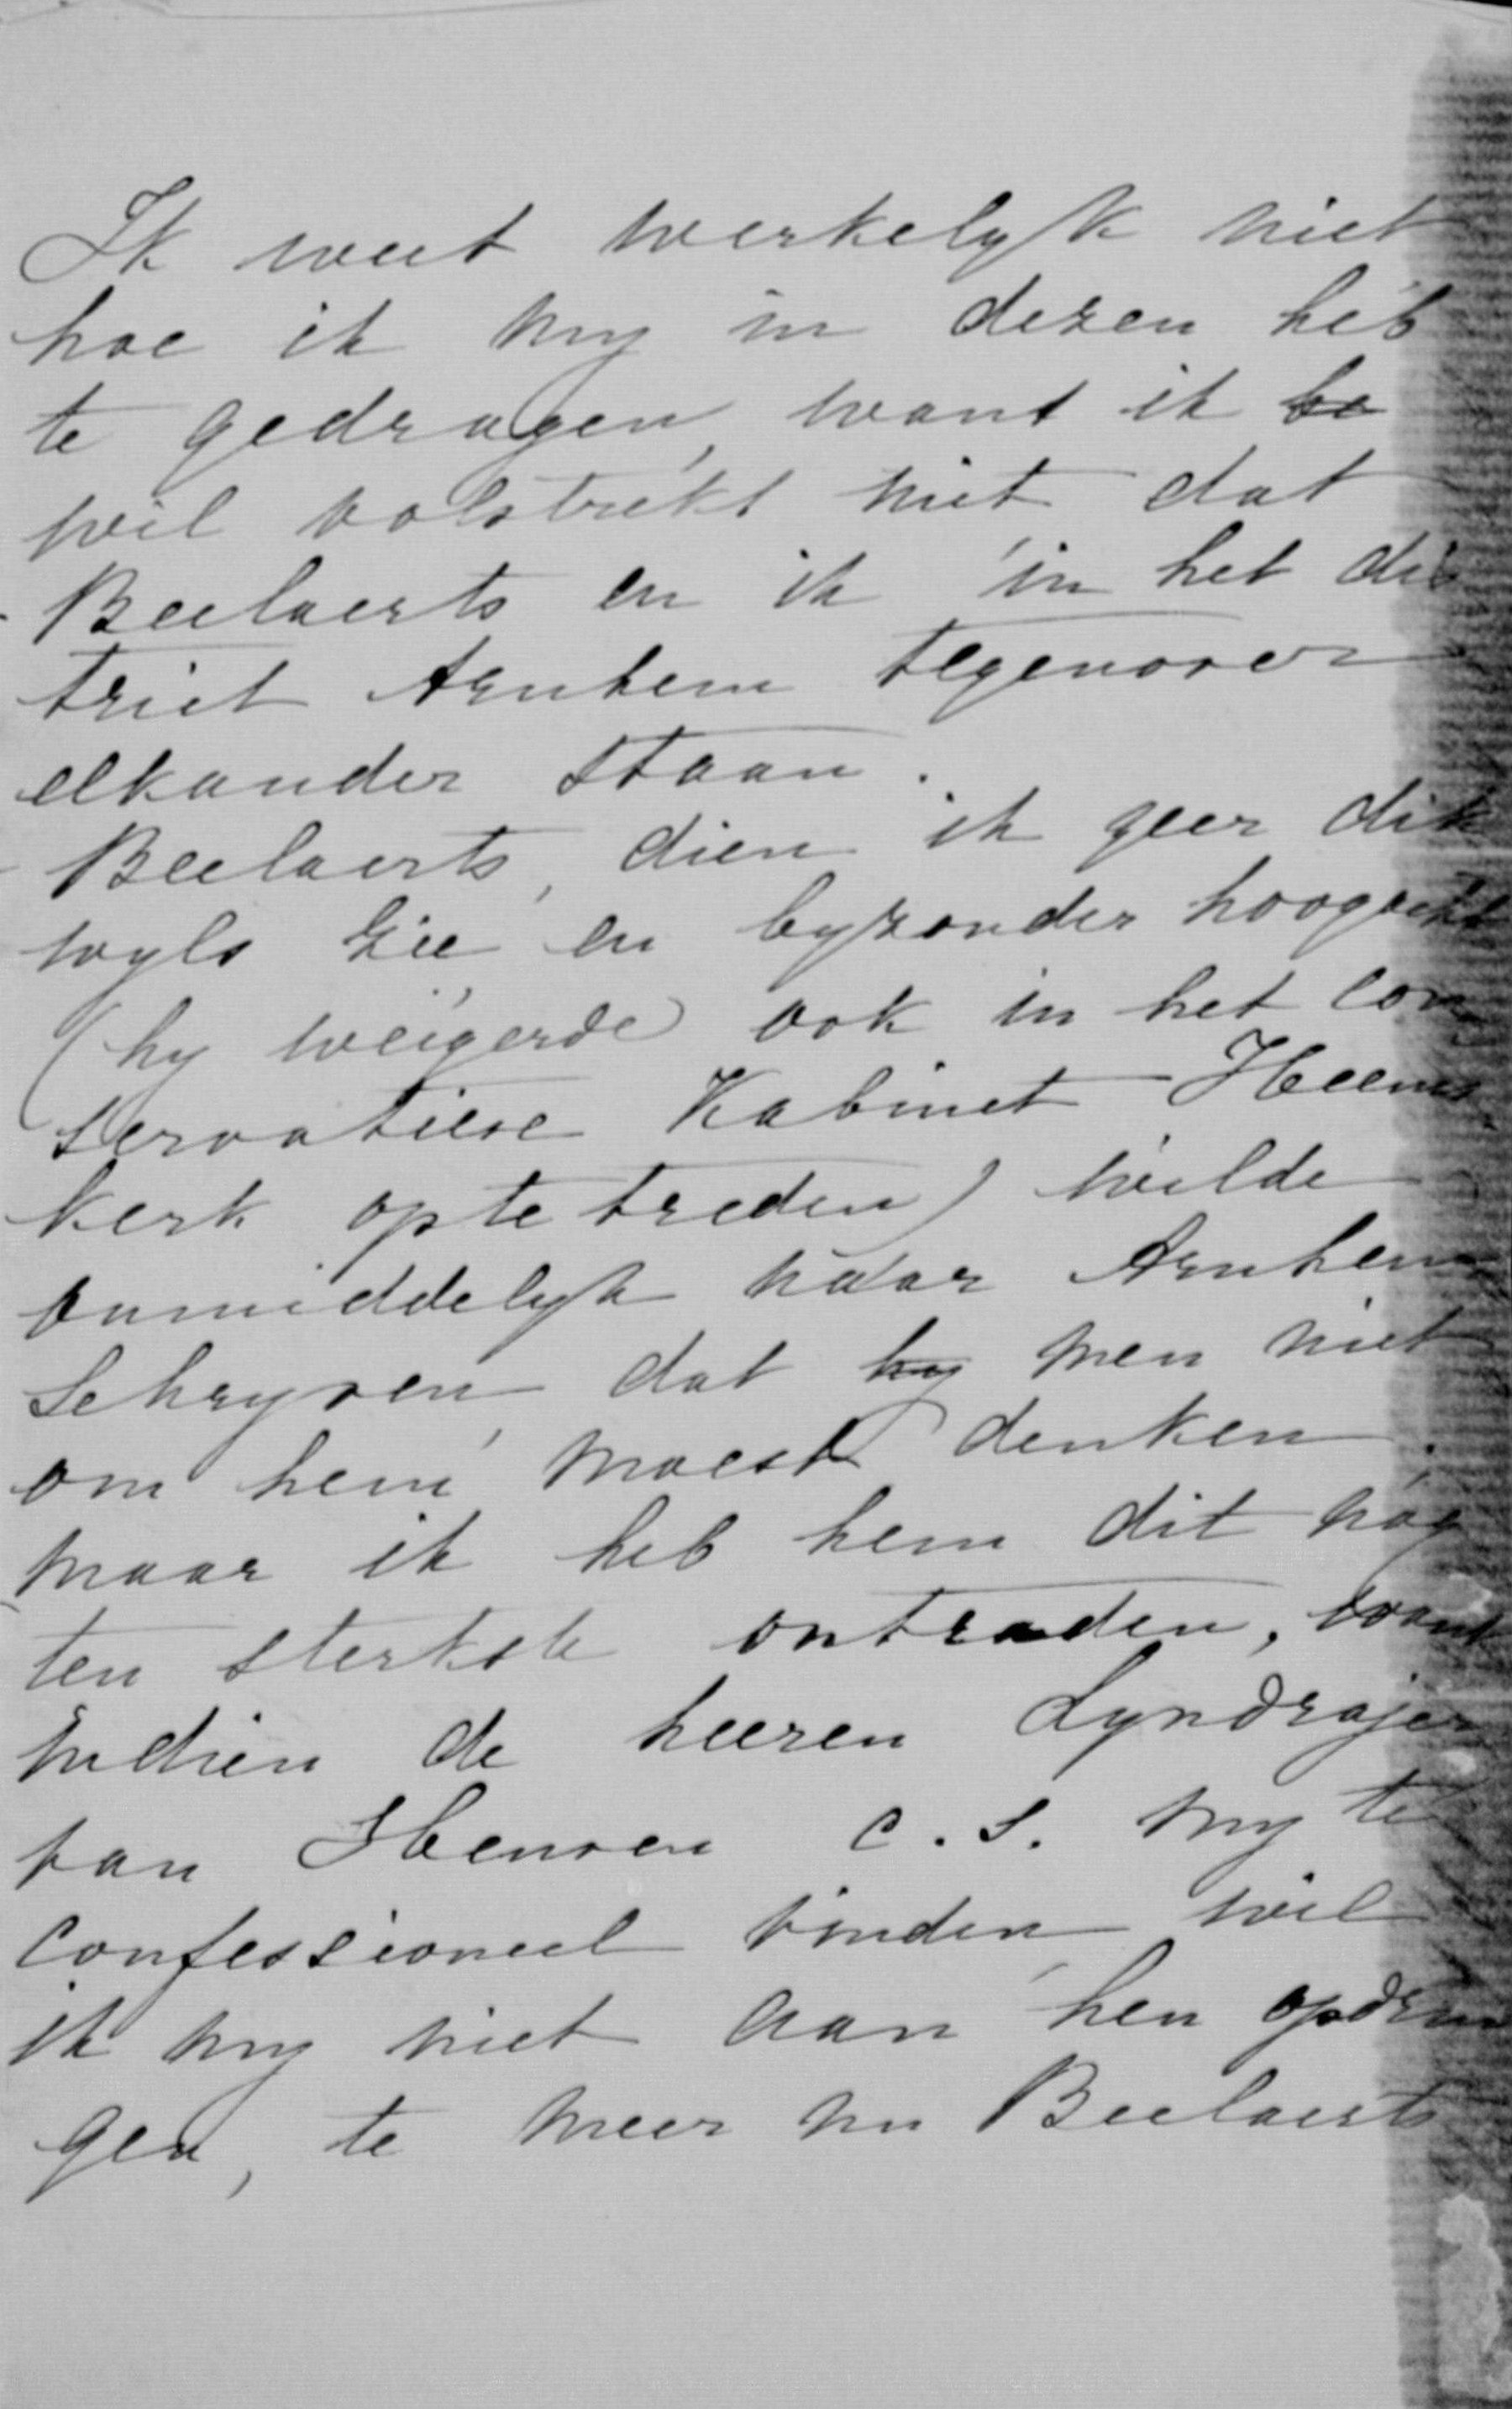 Ik weet werkelyk niet
hoe ik my in dezen heb
te gedragen, want ik be
wil volstrekt niet dat
Beelaerts en ik in het dis
trict Arnhem tegenover
elkander staan.
Beelaerts, dien ik zeer dik
wyls zie en byzonder hoogacht
(hy weigerde ook in het con
servatieve Kabinet Heems
kerk op te treden) wilde
onmiddelyk naar Arnhem
schryven, dat hy men niet
om hem moest denken.
maar ik heb hem dit nog
ten sterkste ontraden, want
indien de heeren Lyndrajer
van Hemren c.s. my te
confessioneel vinden, wil
ik my niet aan hen opdrin
gen, te meer nu Beelaerts